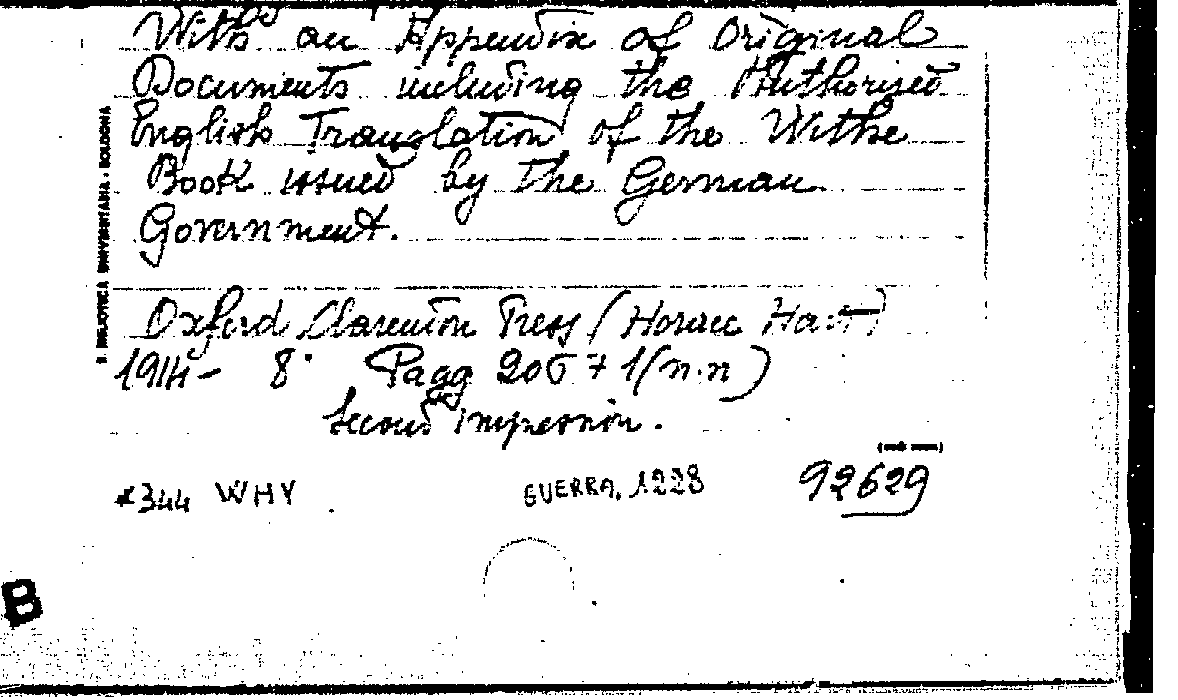 With an Appendix of Original
Documents including the Authorised
English Translation of the Withe
Book issued by the German
Government.
Oxford Clarendon Press (Horace Hart)
1914 - 8° Pagg 206 + 1(n.n)
Second impression.
*344 WHY GUERRA, 1228 92629
BIBLIOTECA UNIVERSITARIA - BOLOGNA
B